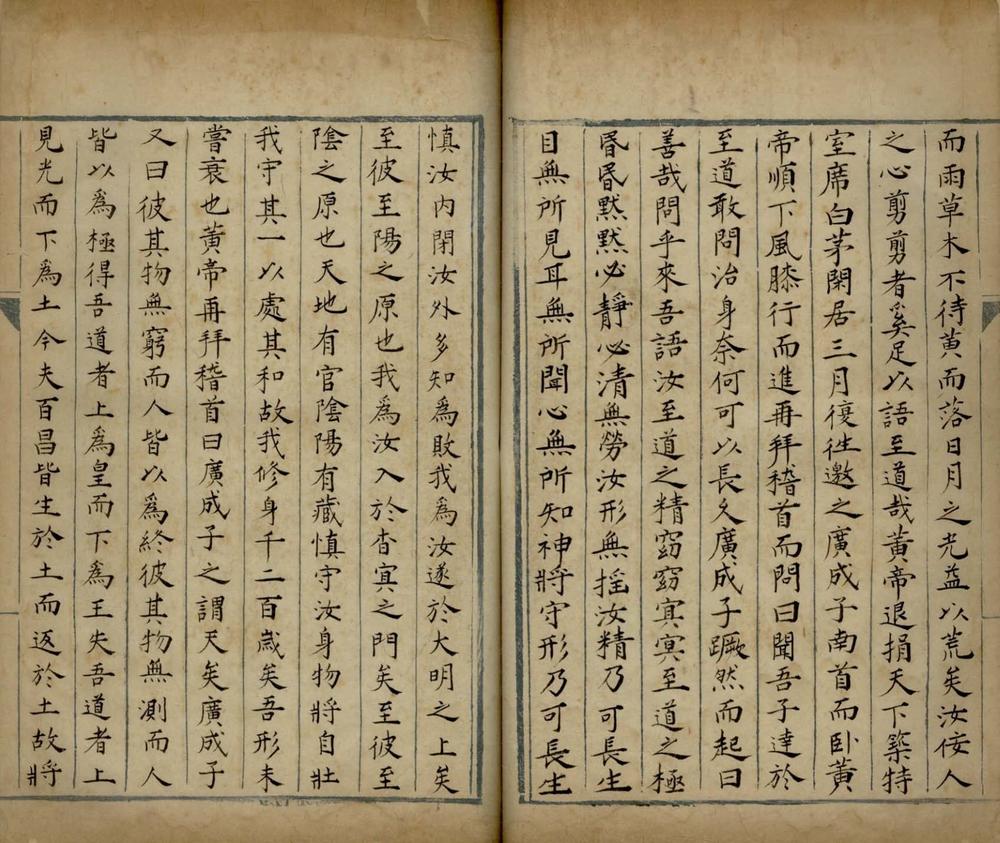 而雨草木不待黄而落日月之光益以荒矣汝佞人
之心剪剪者奚足以語至道哉黄帝退捐天下築特
室席白茅閑居三月復徃邀之廣成子南首而卧黄
帝順下風膝行而進再拜稽首而問曰聞吾子達於
至道敢問治身奈何可以長久廣成子蹶然而起曰
善哉問乎來吾語汝至道之精窈窈㝠㝠至道之極
昬昬黙黙必靜必清無勞汝形無揺汝精乃可長生
目無所見耳無所聞心無所知神將守形乃可長生
慎汝内閉汝外多知為敗我為汝遂於大明之上矣
至彼至陽之原也我為汝入於杳㝠之門矣至彼至
陰之原也天地有官陰陽有藏慎守汝身物將自壯
我守其一以處其和故我修身千二百歳矣吾形未
嘗衰也黄帝再拜稽首曰廣成子之謂天矣廣成子
又曰彼其物無窮而人皆以為終彼其物無測而人
皆以為極得吾道者上為皇而下為王失吾道者上
見光而下為土今夫百昌皆生於土而返於土故將